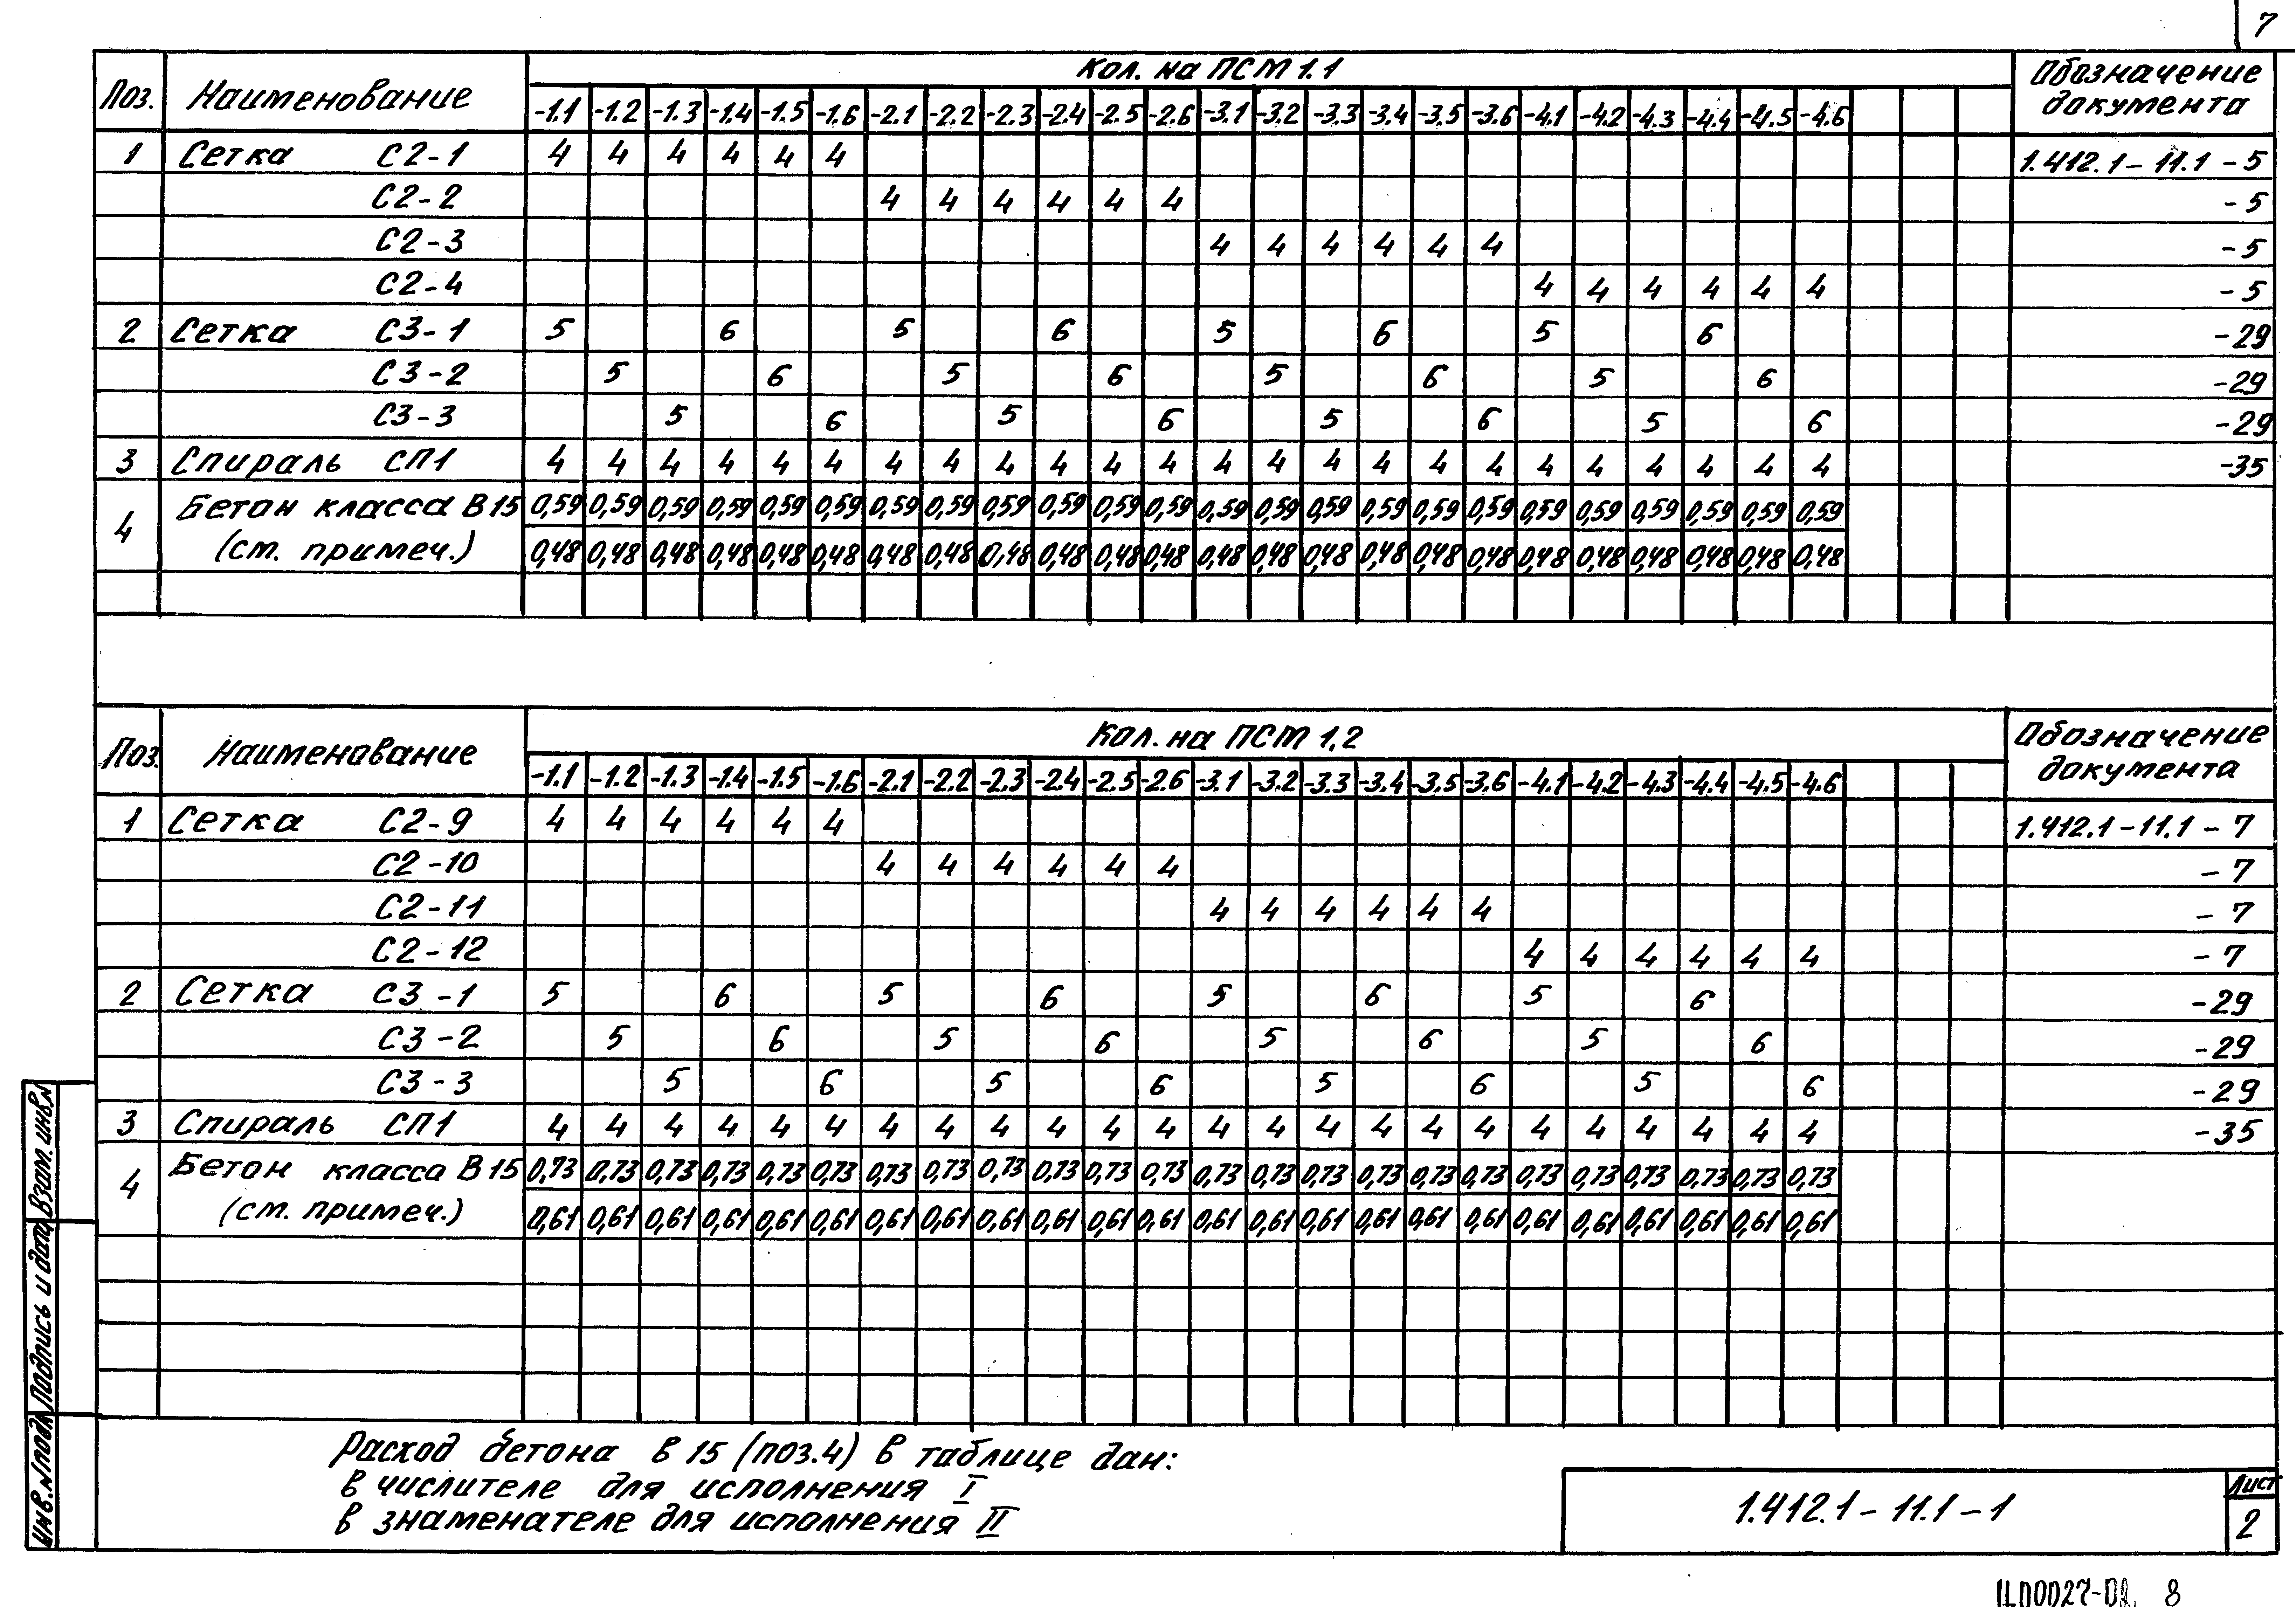 7
Поз. Наименование Кол. на ПСМ 1.1 Обозначение документа
-1.1 -1.2 -1.3 -1.4 -1.5 -1.6 -2.1 -2.2 -2.3 -2.4 -2.5 -2.6 -3.1 -3.2 -3.3 -3.4 -3.5 -3.6 -4.1 -4.2 -4.3 -4.4 -4.5 -4.6
1 Сетка С2-1 4 4 4 4 4 4 1.412.1-11.1-5
С2-2 4 4 4 4 4 4 -5
С2-3 4 4 4 4 4 4 -5
С2-4 4 4 4 4 4 4 -5
2 Сетка С3-1 5 6 5 6 5 6 5 6 -29
С3-2 5 6 5 6 5 6 5 6 -29
С3-3 5 6 5 6 5 6 5 6 -29
3 Спираль СП1 4 4 4 4 4 4 4 4 4 4 4 4 4 4 4 4 4 4 4 4 4 4 4 4 -35
4 Бетон класса В15 0,59 0,59 0,59 0,59 0,59 0,59 0,59 0,59 0,59 0,59 0,59 0,59 0,59 0,59 0,59 0,59 0,59 0,59 0,59 0,59 0,59 0,59 0,59 0,59
(см. примеч.) 0,48 0,48 0,48 0,48 0,48 0,48 0,48 0,48 0,48 0,48 0,48 0,48 0,48 0,48 0,48 0,48 0,48 0,48 0,48 0,48 0,48 0,48 0,48 0,48
Поз. Наименование Кол. на ПСМ 1,2 Обозначение документа
-1.1 -1.2 -1.3 -1.4 -1.5 -1.6 -2.1 -2.2 -2.3 -2.4 -2.5 -2.6 -3.1 -3.2 -3.3 -3.4 -3.5 -3.6 -4.1 -4.2 -4.3 -4.4 -4.5 -4.6
1 Сетка С2-9 4 4 4 4 4 4 1.412.1-11.1-7
С2-10 4 4 4 4 4 4 -7
С2-11 4 4 4 4 4 4 -7
С2-12 4 4 4 4 4 4 -7
2 Сетка С3-1 5 6 5 6 5 6 5 6 -29
С3-2 5 6 5 6 5 6 5 6 -29
С3-3 5 6 5 6 5 6 5 6 -29
3 Спираль СП1 4 4 4 4 4 4 4 4 4 4 4 4 4 4 4 4 4 4 4 4 4 4 4 4 -35
4 Бетон класса В15 0,73 0,73 0,73 0,73 0,73 0,73 0,73 0,73 0,73 0,73 0,73 0,73 0,73 0,73 0,73 0,73 0,73 0,73 0,73 0,73 0,73 0,73 0,73 0,73
(см. примеч.) 0,61 0,61 0,61 0,61 0,61 0,61 0,61 0,61 0,61 0,61 0,61 0,61 0,61 0,61 0,61 0,61 0,61 0,61 0,61 0,61 0,61 0,61 0,61 0,61
Расход бетона В 15 (поз.4) в таблице дан:
в числителе для исполнения I
в знаменателе для исполнения II
Инв.№подл Подпись и дата Взам. инв.№
1.412.1-11.1-1
Лист
2
8